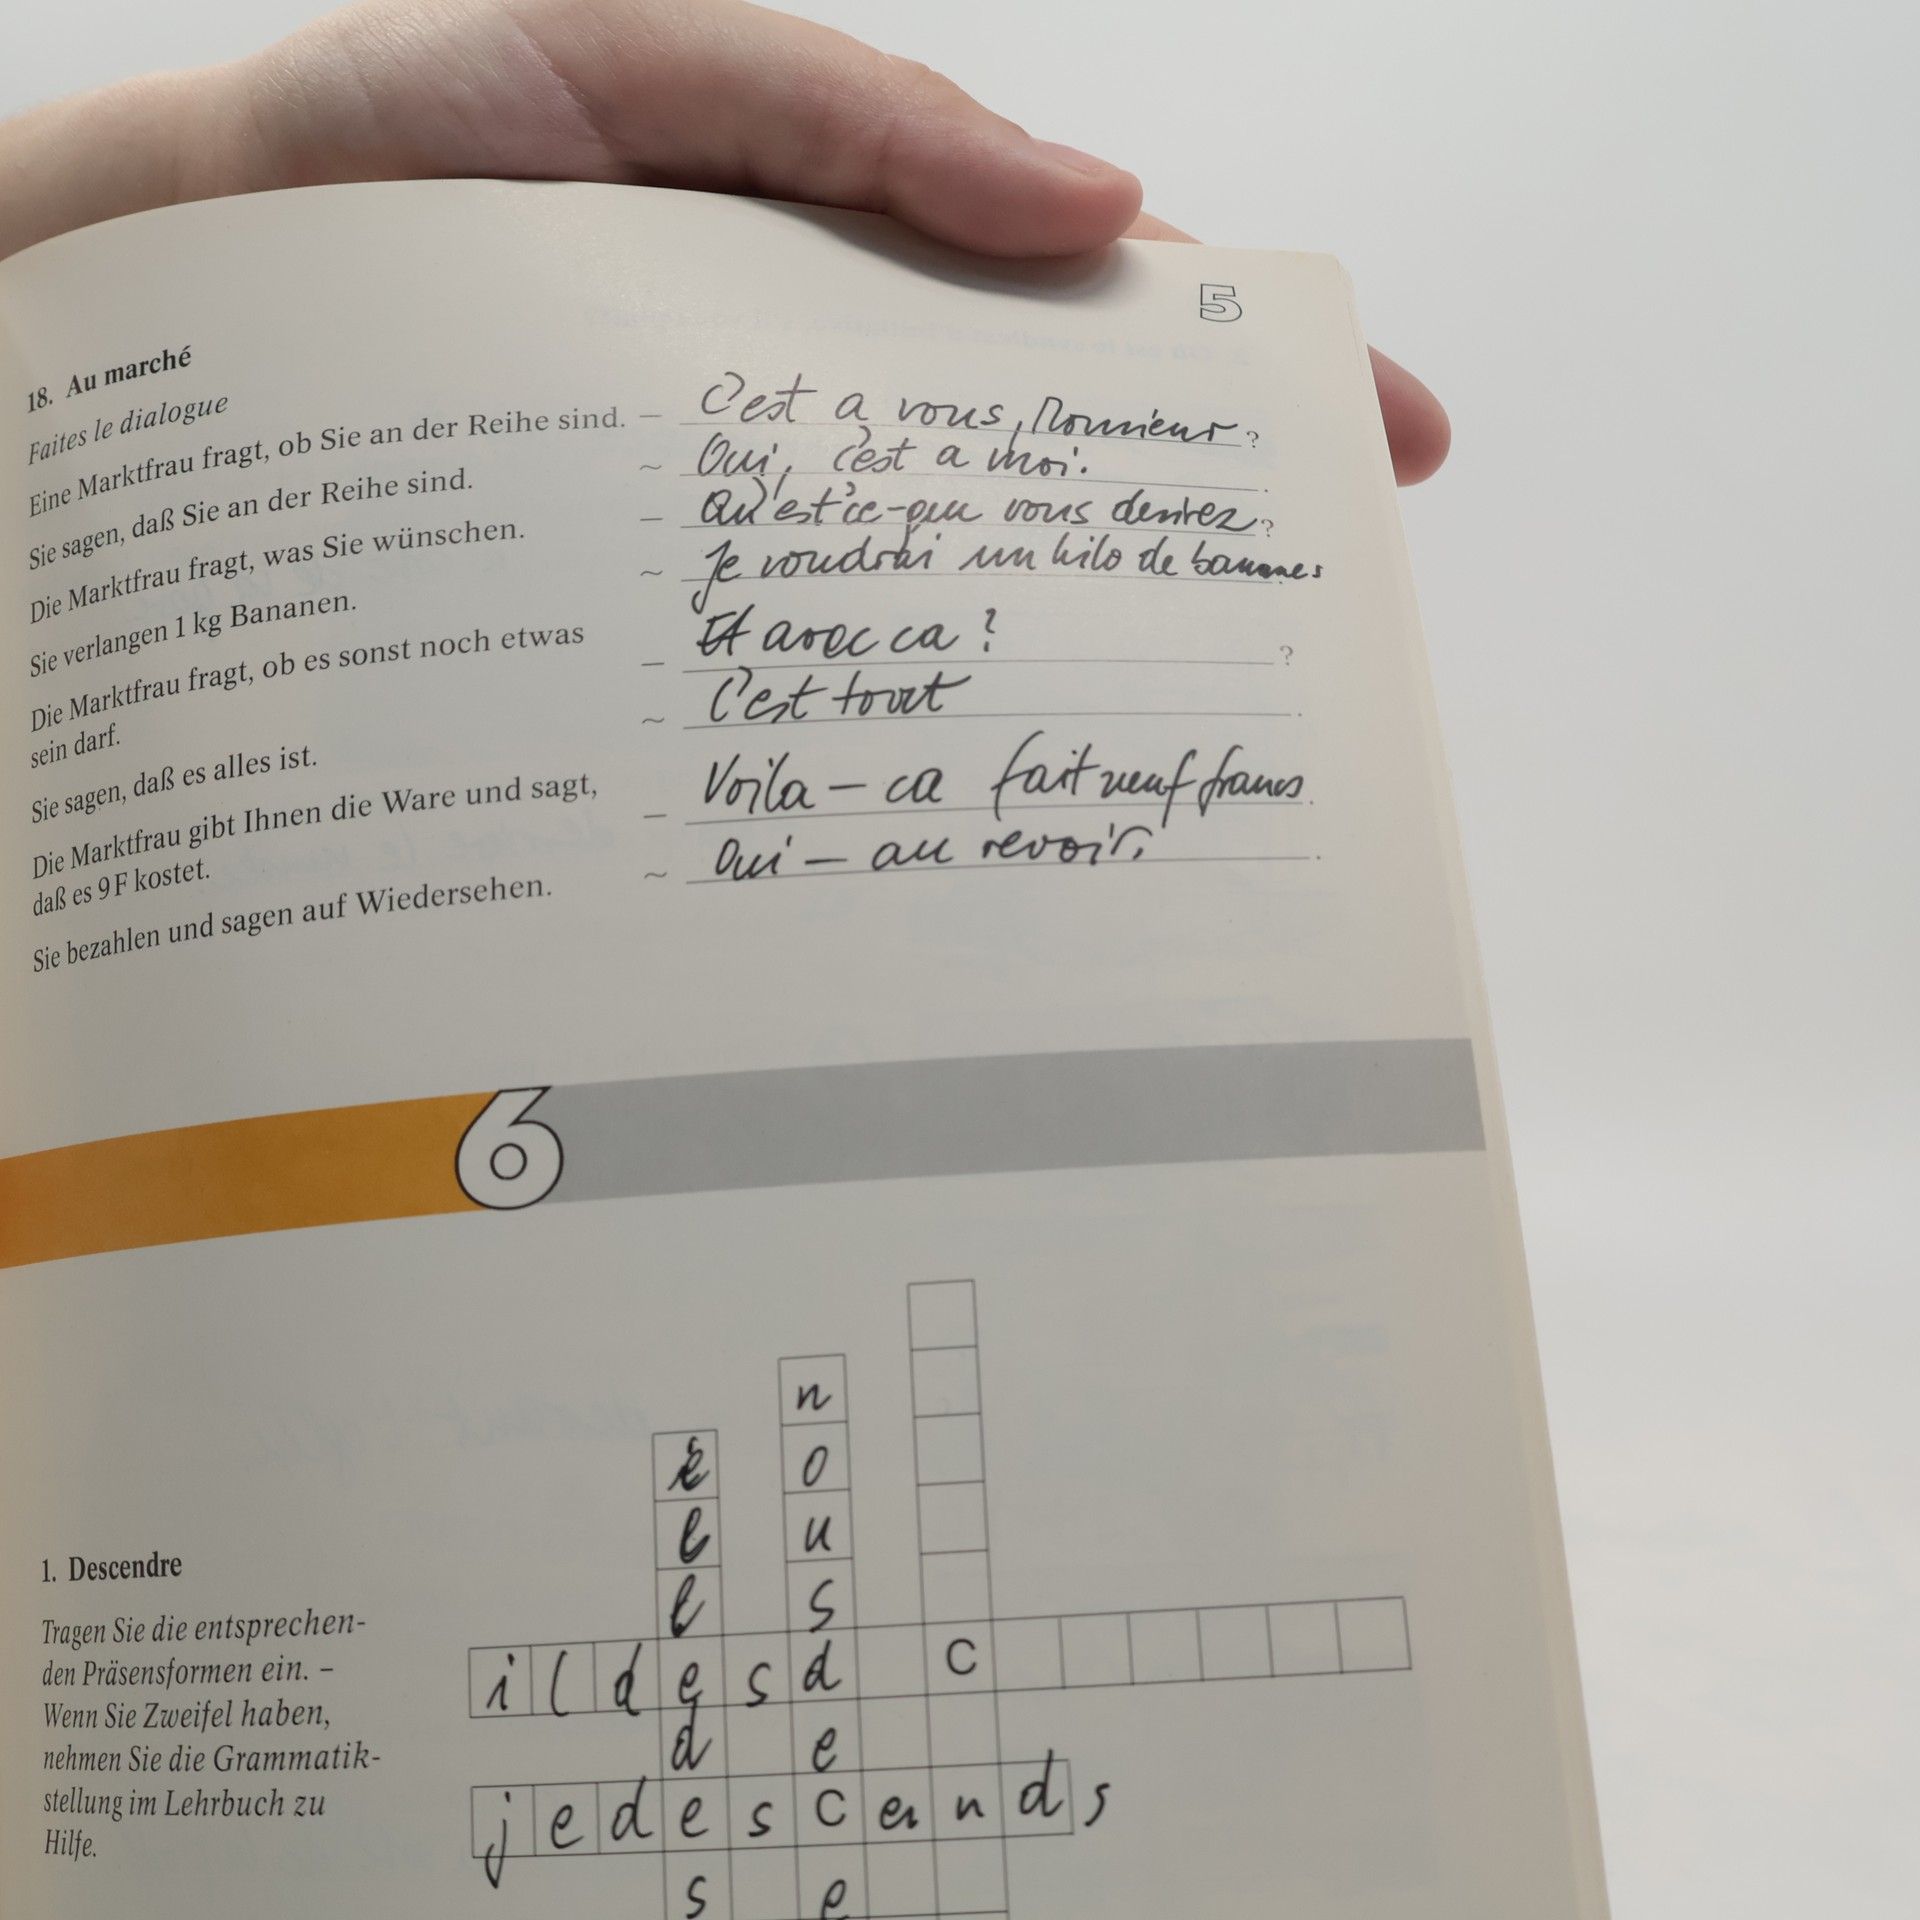 5
18. Au marché
Faites le dialogue
Eine Marktfrau fragt, ob Sie an der Reihe sind. – C'est a vous, Monsieur ?
Sie sagen, daß Sie an der Reihe sind. ~ Oui, c'est a moi.
Die Marktfrau fragt, was Sie wünschen. – Qu'est'ce-que vous desirez ?
Sie verlangen 1 kg Bananen. ~ Je voudrai un kilo de bananes
Die Marktfrau fragt, ob es sonst noch etwas
sein darf. – Et avec ca ? ?
Sie sagen, daß es alles ist. ~ C'est tout .
Die Marktfrau gibt Ihnen die Ware und sagt,
daß es 9 F kostet. – Voila – ca fait neuf francs .
Sie bezahlen und sagen auf Wiedersehen. ~ Oui – au revoir. .
6
1. Descendre
Tragen Sie die entsprechen-
den Präsensformen ein. –
Wenn Sie Zweifel haben,
nehmen Sie die Grammatik-
stellung im Lehrbuch zu
Hilfe.
n
e o
l u
l s
i l d e s d c
d e
j e d e s c e n d s
s e